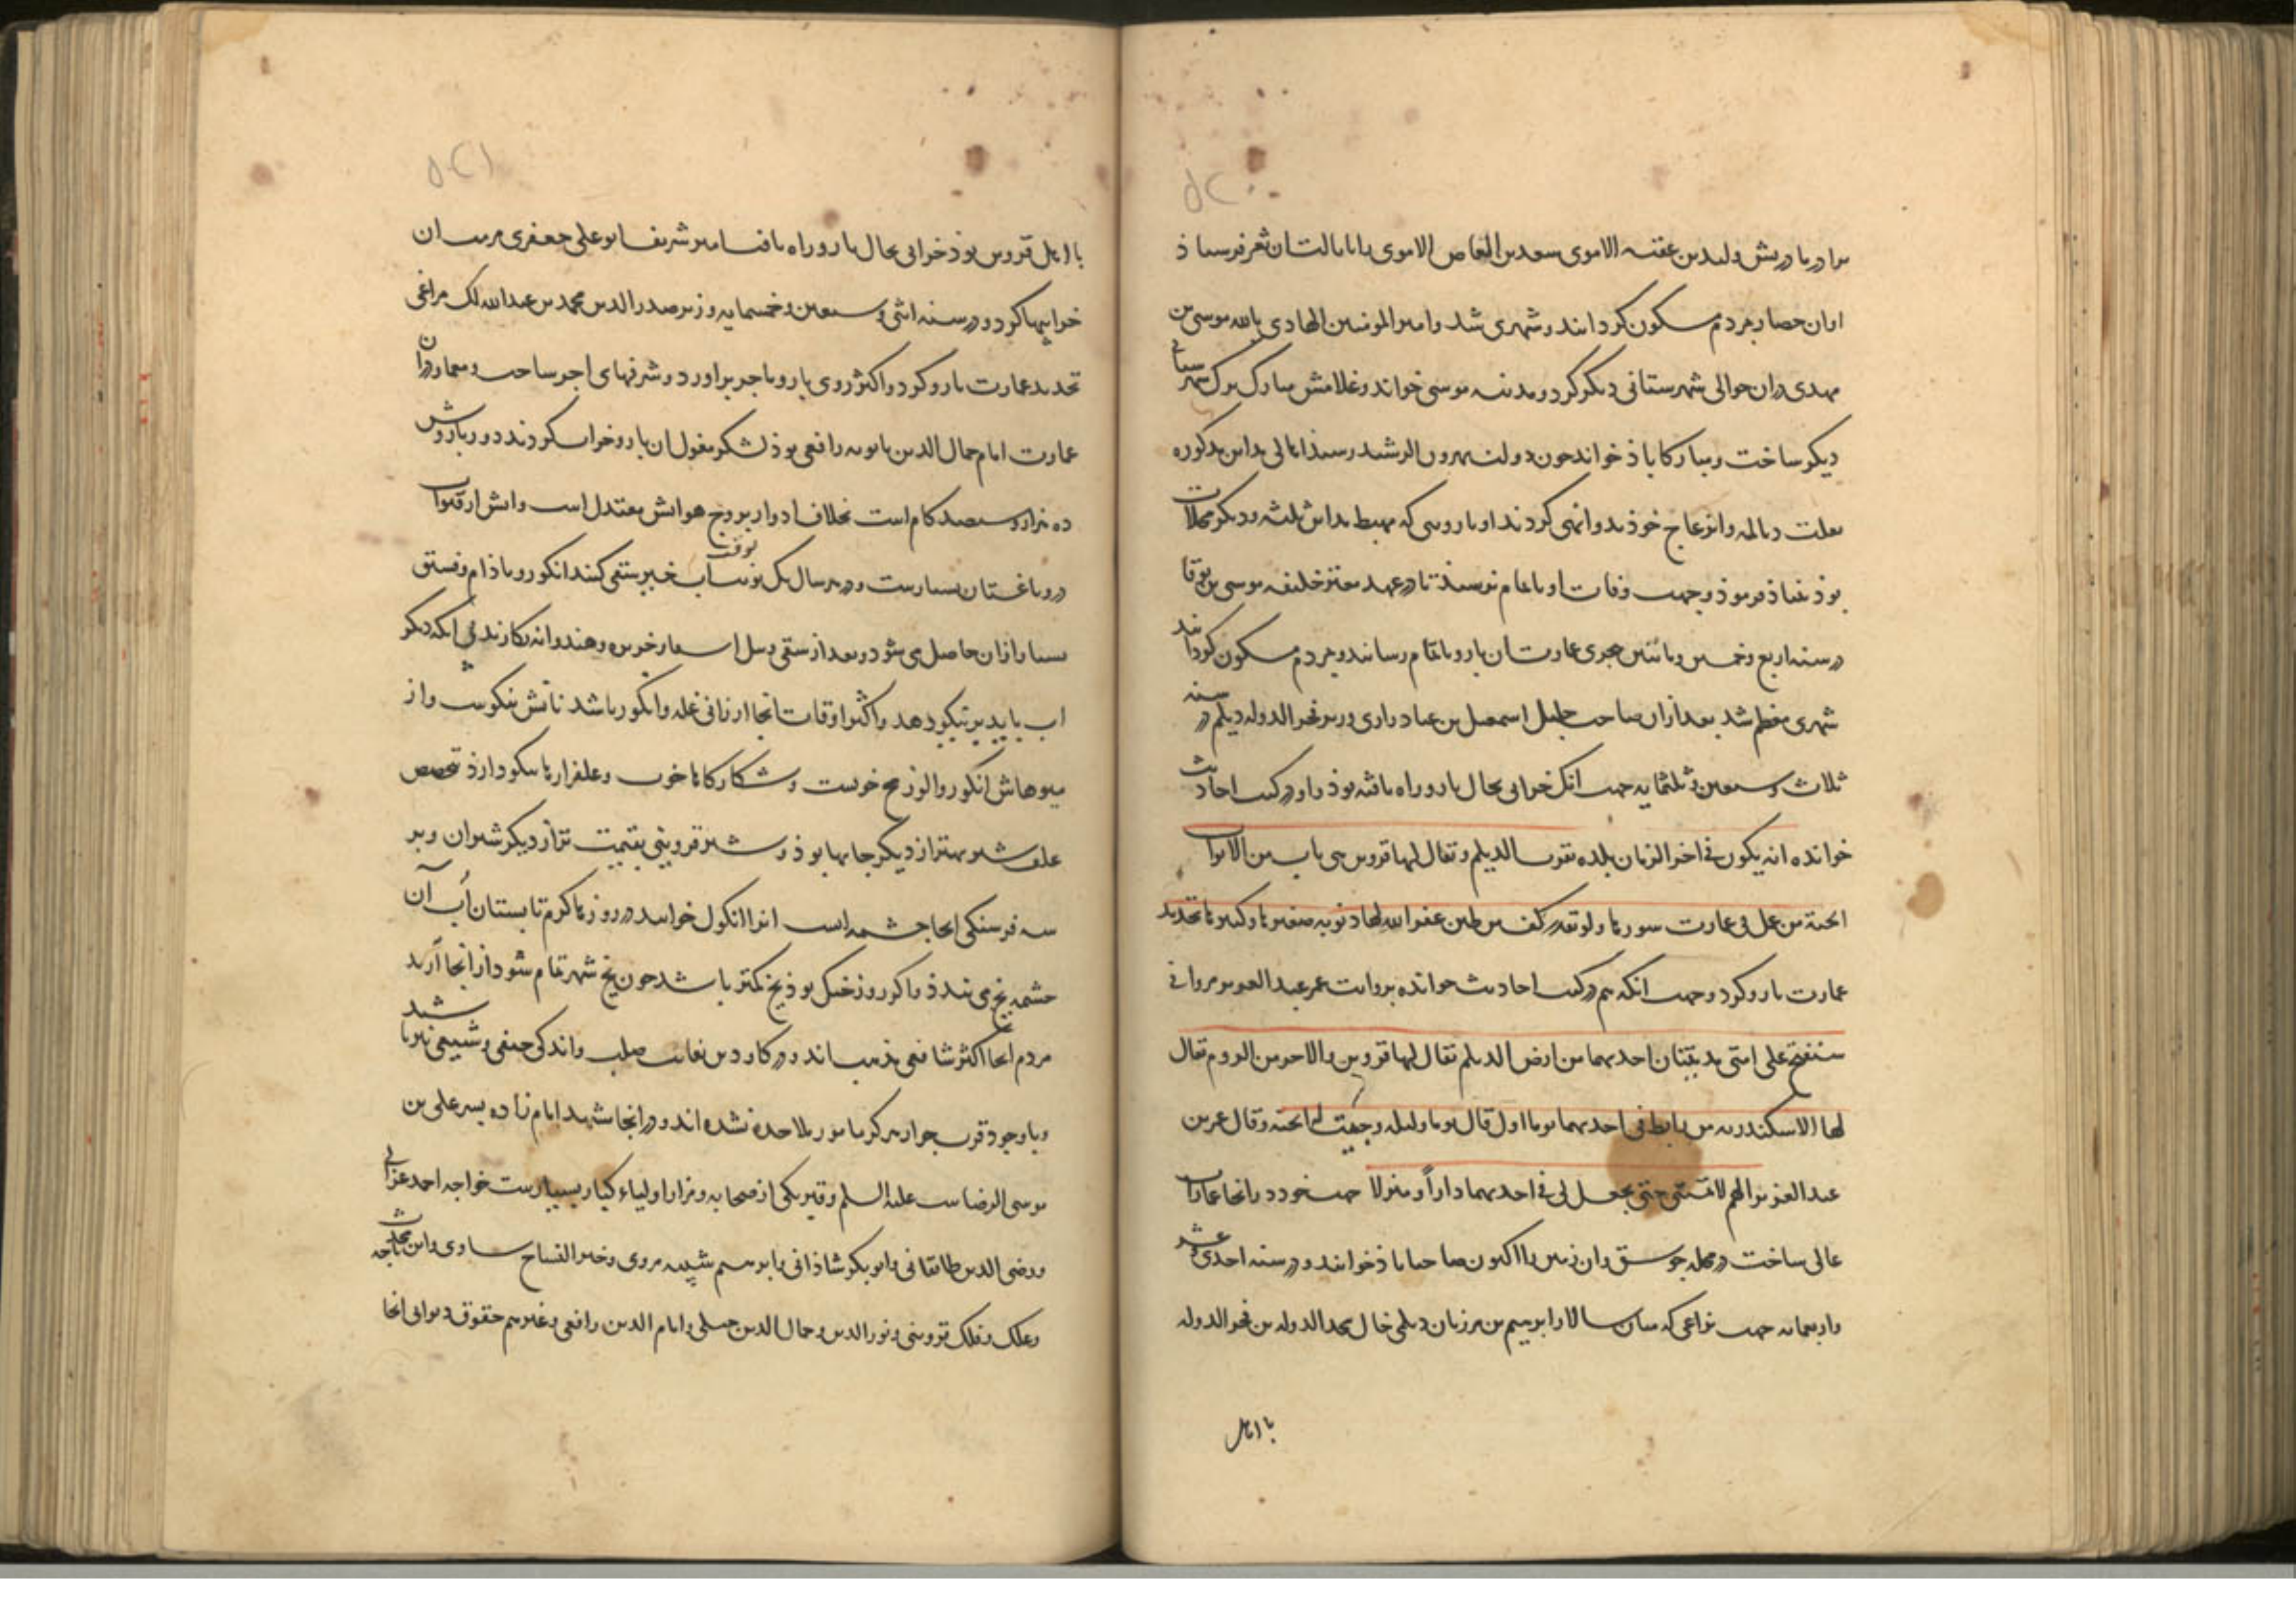 ۵۲۰
برادر مادریش ولید بن عقبه الاموی سعید بن العاص الاموی را بایالت آن ثغر فرستاذ
او آن حصار بمردم مسکون گردانید و شهری شد و امیر المومنین الهادی بالله موسی بن
مهدی دران حوالی شهرستانی دیگر کرد و مدینه موسی خواند و غلامش مبارک ترک شهرستانی
دیگر ساخت و مبارکاباذ خواند چون دولت بهرون الرشید رسید اهالی مداین مذکوره
تغلب دیالمه و انزعاج خوذ بدو انهی کردند او باروی که محیط مداین ثلثه و دیگر محلات
بوذ بنیاذ فرموذ و جهت وفات او باتمام نرسید تا در عهد معتز خلیفه موسی بن بوقا
در سنه اربع و خمسین و مائتین هجری عمارت آن بارو باتمام رسانید و بمردم مسکون گردانید
شهری معظم شد بعد ازان صاحب جلیل اسمعیل بن عباد رازی وزیر فخر الدوله دیلم در سنه
ثلاث و سبعین و ثلثمایه جهت انک خرابی بحال بارو راه یافته بوذ و او در کتب احادیث
خوانده انه یکون فی اخر الزمان بلده بقرب الدیلم و یقال لها قزوین هی باب من الابواب
الجنة من عمل فی عمارت سورها ولو بقدر کف من طین غفر الله لها ذنوبه صغیرها و کبیرها تجدید
عمارت بارو کرد و جهت انکه هم در کتب احادیث خوانده بروایت عمر عبد العزیز مروانی
ستفتح علی امتی مدینتان احدیهما من ارض الدیلم یقال لها قزوین والاخر من الروم یقال
لها الاسکندریه من رابط فی احدیهما یوما او قال یوما ولیله وجبت له الجنه و قال عمر بن
عبد العزیز اللهم لا تمتنی حتی تجعل لی فی احدیهما داراً و منزلا جهت خود در انجا عمارات
عالی ساخت در محله جوسق و ان زمین را اکنون صاحباباذ خوانند و در سنه احدی عشر
و اربعمایه جهت نزاعی که میان سالار ابرهیم بن مرزبان دیلمی خال مجد الدوله بن فخر الدوله
با اهل
۵۲۱
با اهل قزوین بوذ خرابی بحال بارو راه یافت امیر شریف ابو علی جعفری مرمت ان
خرابیها کرد و در سنه اثنی و سبعین و خمسمایه وزیر صدر الدین محمد بن عبد الله لک مراغی
تجدید عمارت بارو کرد و اکثر روی بارو باجر براورد و شرفهای اجر ساخت و معمار دران
عمارت امام جمال الدین بابویه رافعی بوذ لشکر مغول ان بارو خراب کردند دور باروش
ده هزار و سیصد کام است بخلاف ادوار بروج هوایش معتدل است و ابش از قنوات
در و باغستان بسیارست و در هر سال یک نوبت بوقت آب خیز سقی کنند انکور و باذام و فستق
بسیار ازان حاصل می شود و بعد از سقی سیل اب خربزه و هندوانه بکارند بی انکه دیکر
اب یابد بر نیکو دهد و اکثر اوقات انجا ارزانی غله و انکور باشد نانش نیکوست و از
میوهاش انکور و الوزرج خوبست و شکارکاها خوب و علفزارها نیکو دارذ بتخصیص
علف شتر بهتر از دیکر جایها بوذ و شتر قزوینی بقیمت تر از دیکر شتران و بر
سه فرسنکی انجا چشمه است انرا انکول خوانند در روزهای کرم تابستان آب آن
چشمه یخ می بندذ و اکر روز خنک بوذ یخ کمتر باشد چون یخ شهر تمام شود از انجا آرند
مردم انجا اکثر شافعی مذهب اند و در کار دین بغایت صلب و اندکی حنفی و شیعی نیز باشند
و با وجود قرب جوار هرکز مامور ملاحده نشده اند و در انجا مشهد امام زاده پسر علی بن
موسی الرضاست علیه السلم و قبر یکی از صحابه و مزار اولیاء کبار بسیارست خواجه احمد غزالی
و رضی الدین طالقانی و ابو بکر شاذانی و ابرهیم شیبه مروی و خیر النساج ساوی و ابن ماجه محدث
و علک و فلک قزوینی و نور الدین و جمال الدین جیلی و امام الدین رافعی و غیرهم حقوق دیوانی انجا